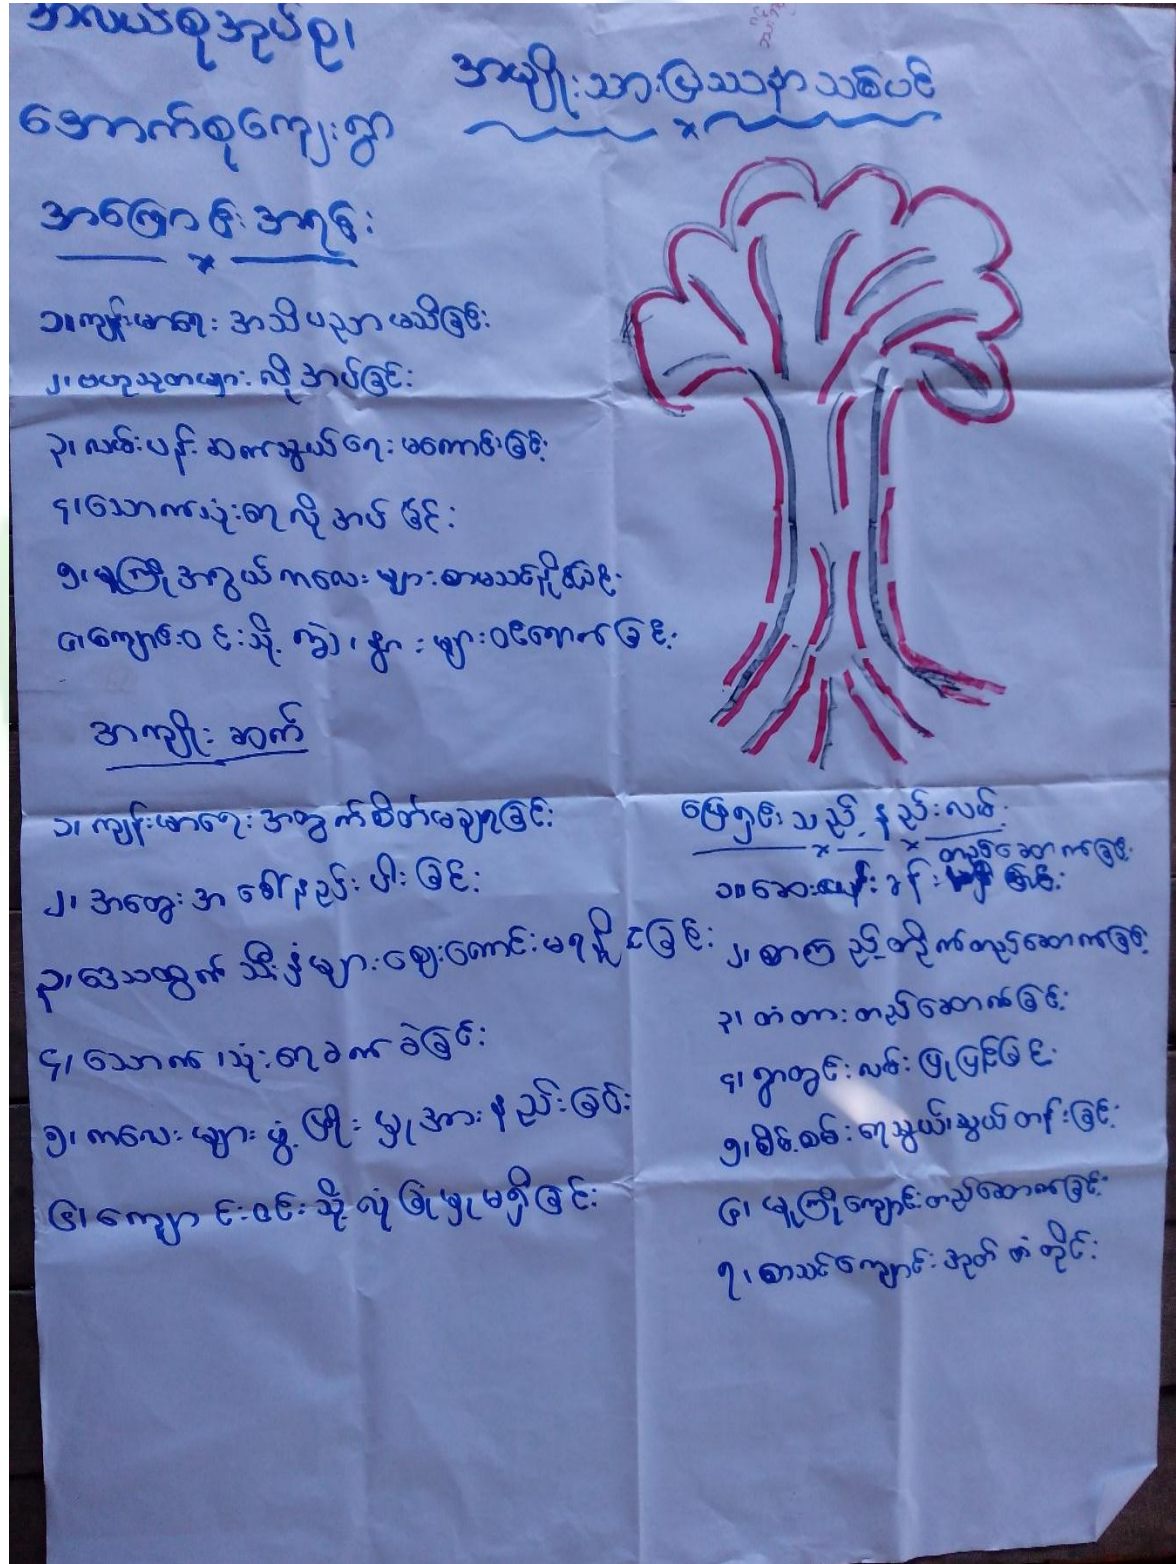 အလယ်စုအုပ်စု၊
အမျိုးသားပြဿနာသစ်ပင်
အောက်စုကျေးရွာ
အကြောင်းအရင်း
၁။ကျန်းမာရေး အသိပညာမသိခြင်း
၂၊ဗဟုသုတများ လိုအပ်ခြင်း
၃၊လမ်းပန်းဆက်သွယ်ရေးမကောင်းခြင်း
၄၊သောက်သုံးရေလိုအပ်ခြင်း
၅၊မူကြိုအရွယ်ကလေးများစာမသင်နိုင်ခြင်း
၆၊ကျောင်းဝင်းသို့ ကျွဲ၊နွားများဝင်ရောက်ခြင်း
အကျိုးဆက်
၁၊ ကျန်းမာရေးအတွက်စိတ်မချရခြင်း
၂၊ အတွေးအခေါ်နည်းပါးခြင်း
၃၊ ဒေသထွက်သီးနှံများဈေးကောင်းမရနိုင်ခြင်း
၄၊ သောက်၊သုံးရေခက်ခဲခြင်း
၅၊ ကလေးများဖွံ့ဖြိုးမှုအားနည်းခြင်း
၆၊ ကျောင်းဝင်းသို့လုံခြုံမှုမရှိခြင်း
ဖြေရှင်းသည့်နည်းလမ်း
တည်ဆောက်ခြင်း
၁။ဆေးပေးခန်း
၂၊ စာကြည့်တိုက်တည်ဆောက်ခြင်း
၃၊ တံတားတည်ဆောက်ခြင်း
၄၊ ရွာတွင်းလမ်းပြုပြင်ခြင်း
၅၊စိမ့်စမ်းရေသွယ်၊သွယ်တန်းခြင်း
၆၊ မူကြိုကျောင်းတည်ဆောက်ခြင်း
၇၊ စာသင်ကျောင်းအုတ်တံတိုင်း